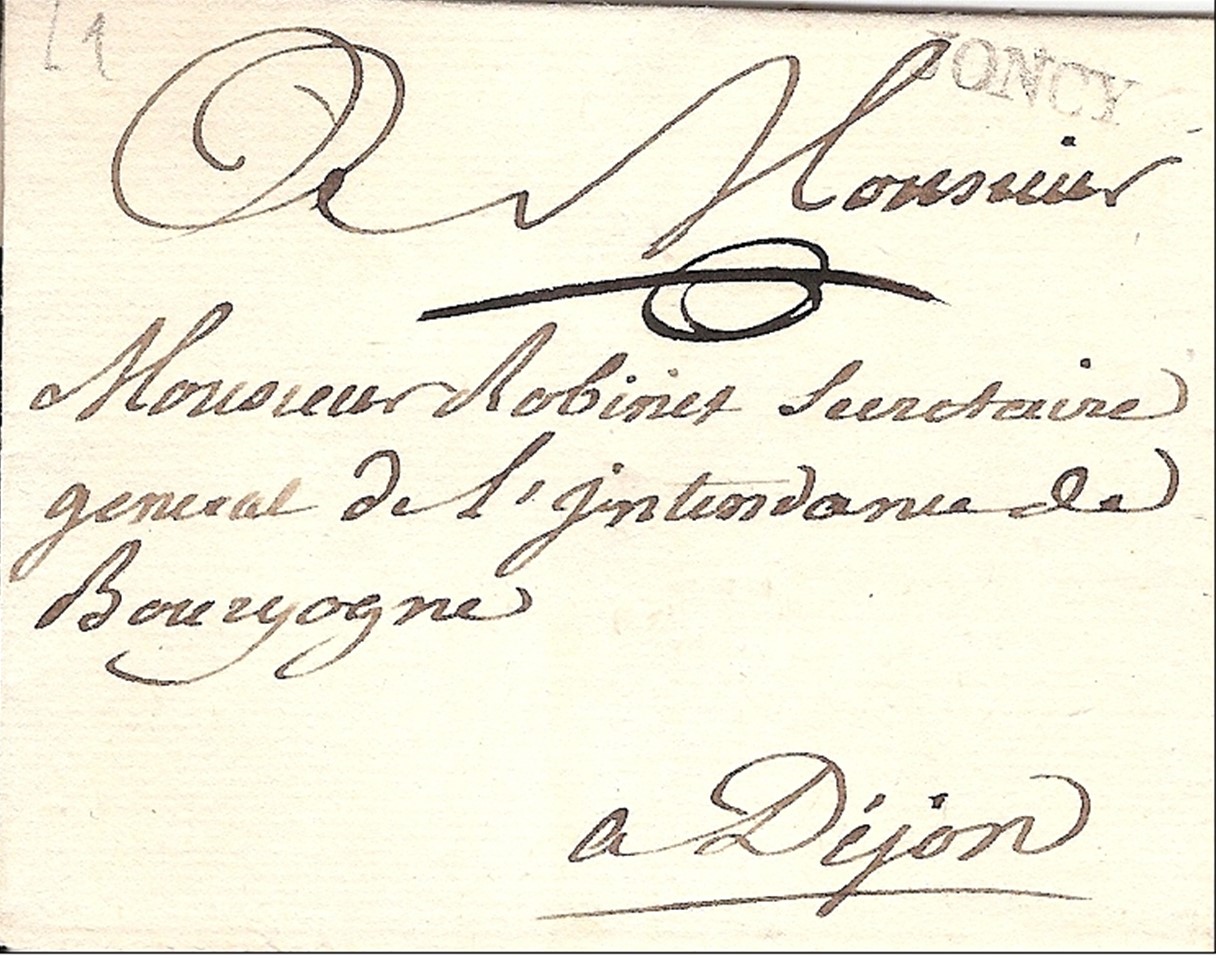 JONCY
A Monsieur
Monsieur Robinet Secretaire
general de l'jntendance de
Bourgogne
a Dijon